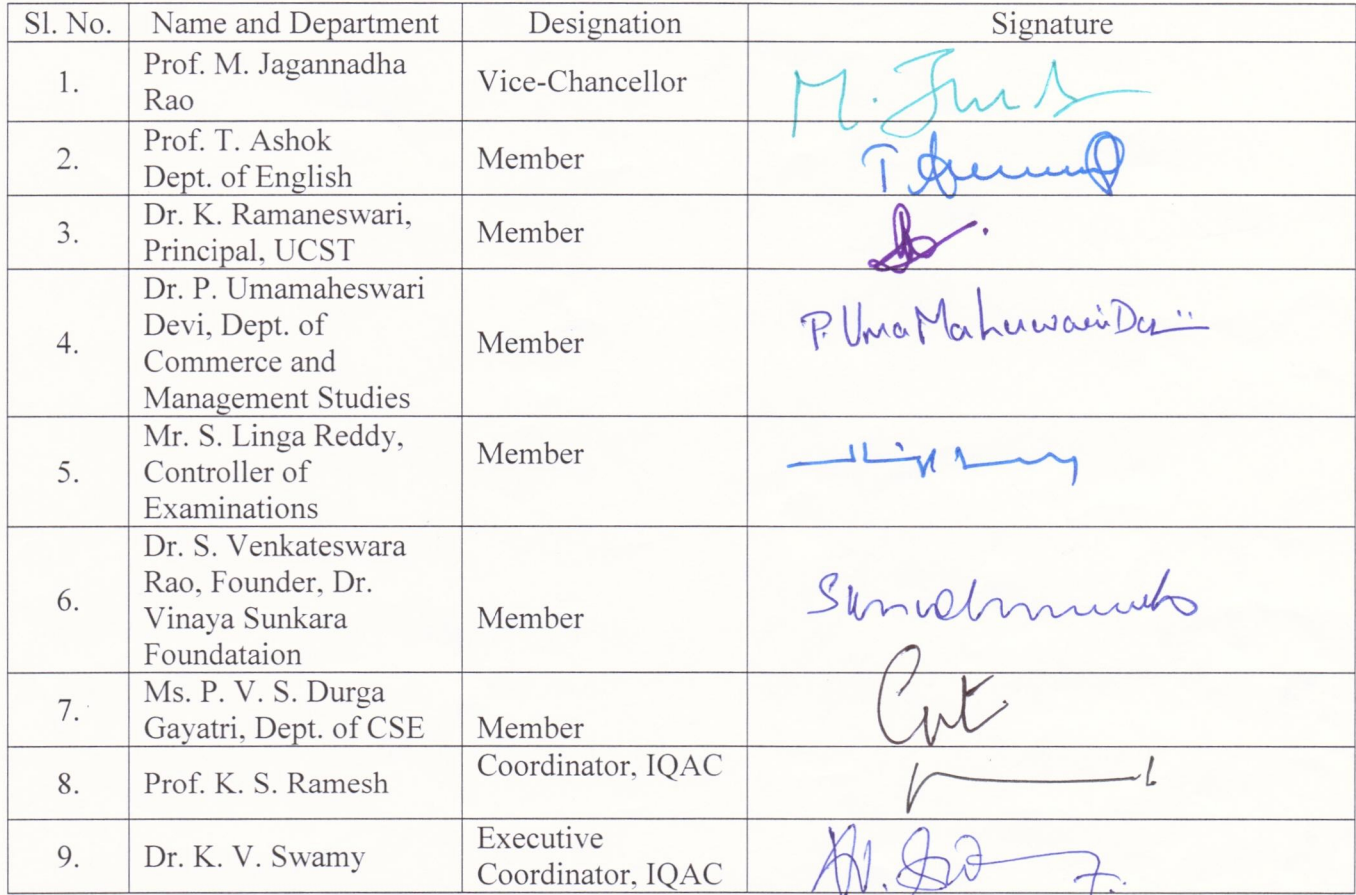 Sl. No. Name and Department Designation Signature
1. Prof. M. Jagannadha
Rao
Vice-Chancellor
M.
2. Prof. T. Ashok
Dept. of English
Member
T
3. Dr. K. Ramaneswari,
Principal, UCST
Member
4. Dr. P. Umamaheswari
Devi, Dept. of
Commerce and
Management Studies
Member
P. Uma Maheswari Devi
5. Mr. S. Linga Reddy,
Controller of
Examinations
Member
6. Dr. S. Venkateswara
Rao, Founder, Dr.
Vinaya Sunkara
Foundataion
Member
7. Ms. P. V. S. Durga
Gayatri, Dept. of CSE
Member
8. Prof. K. S. Ramesh
Coordinator, IQAC
9. Dr. K. V. Swamy
Executive
Coordinator, IQAC